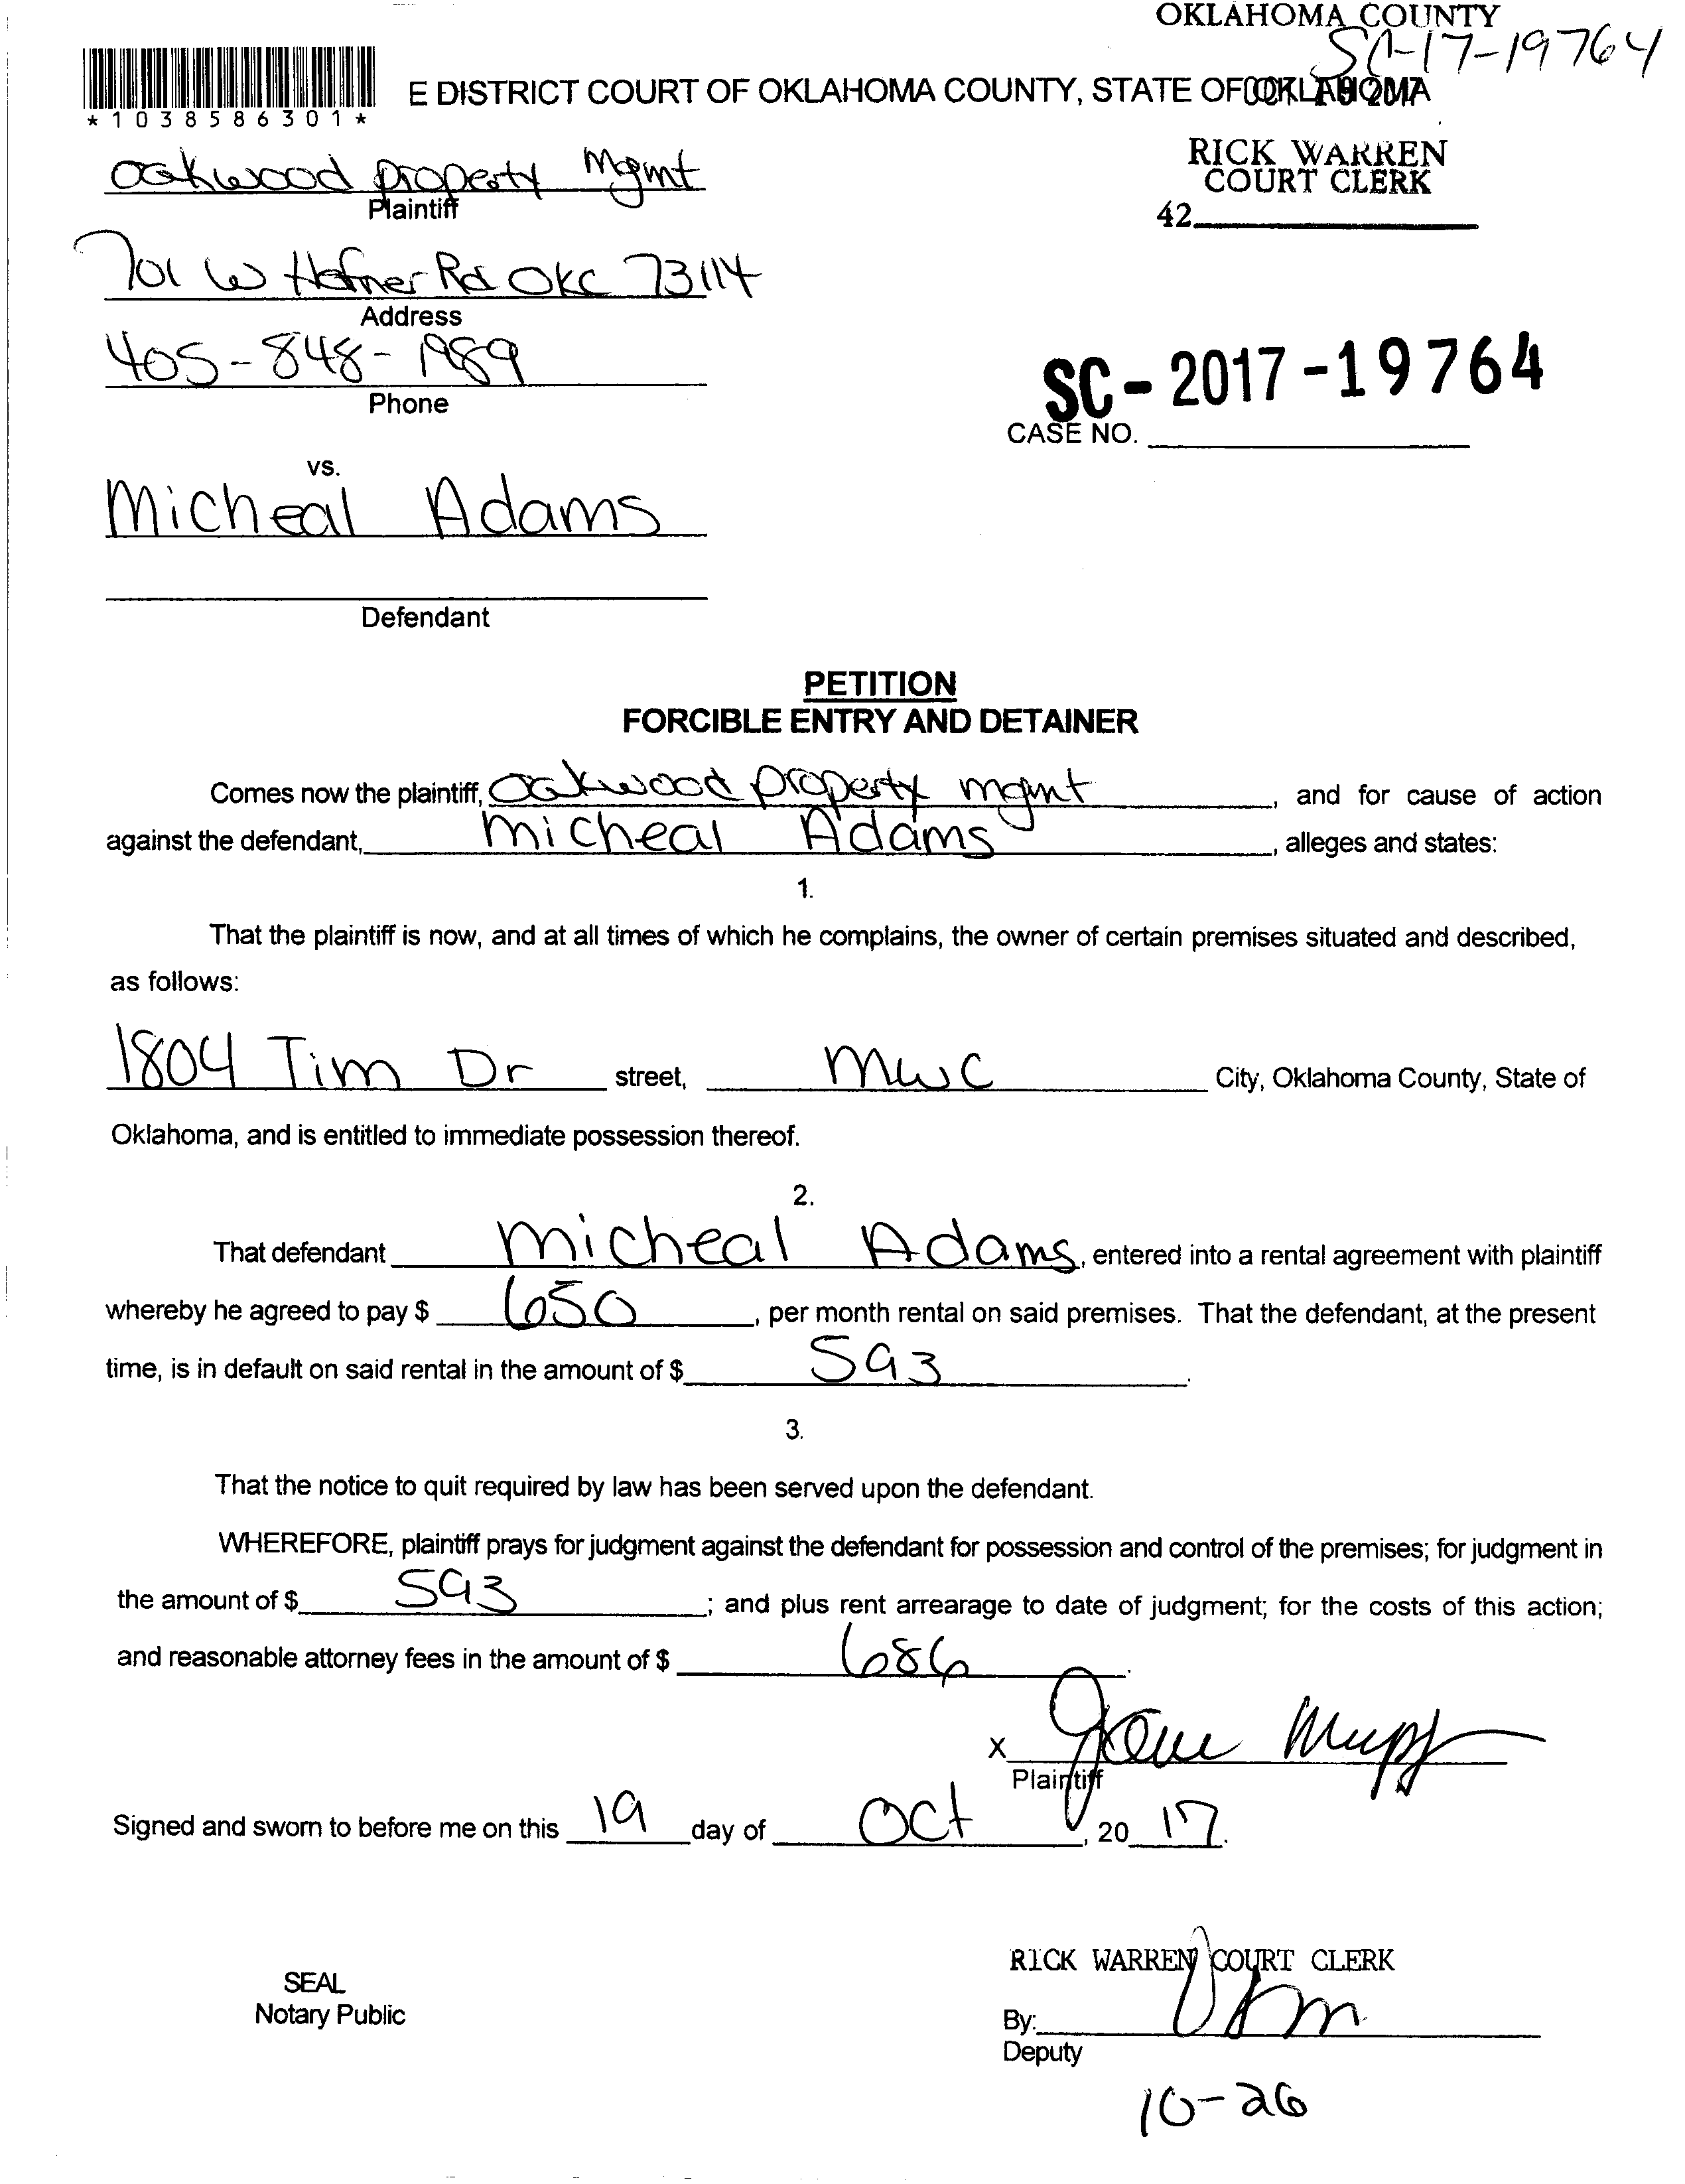 OKLAHOMA COUNTY
SC-17-19764
*1038586301*
E DISTRICT COURT OF OKLAHOMA COUNTY, STATE OF OKLAHOMA
OCT 19 2017
Oakwood property Mgmt
Plaintiff
RICK WARREN
COURT CLERK
42
701 W Hefner Rd OKC 73114
Address
405-848-1989
Phone
SC-2017-19764
CASE NO.
vs.
Micheal Adams
Defendant
PETITION
FORCIBLE ENTRY AND DETAINER
Comes now the plaintiff, Oakwood property mgmt, and for cause of action
against the defendant, Micheal Adams, alleges and states:
1.
That the plaintiff is now, and at all times of which he complains, the owner of certain premises situated and described,
as follows:
1804 Tim Dr street, MWC City, Oklahoma County, State of
Oklahoma, and is entitled to immediate possession thereof.
2.
That defendant Micheal Adams, entered into a rental agreement with plaintiff
whereby he agreed to pay $ 650, per month rental on said premises. That the defendant, at the present
time, is in default on said rental in the amount of $ 593.
3.
That the notice to quit required by law has been served upon the defendant.
WHEREFORE, plaintiff prays for judgment against the defendant for possession and control of the premises; for judgment in
the amount of $ 593; and plus rent arrearage to date of judgment; for the costs of this action;
and reasonable attorney fees in the amount of $ 686.
X
Plaintiff
Signed and sworn to before me on this 19 day of Oct, 20 17.
RICK WARREN COURT CLERK
SEAL
Notary Public
By:
Deputy
10-26